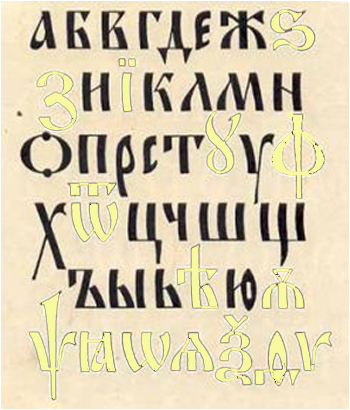 АБВВГДЕЖЅ
ЗИЇКЛМН
ОПРСТꙊУФ
ХѾЦЧШЩ
ЪЫЬѢЮѪ
ѰꙖѠѦѮѲѴ